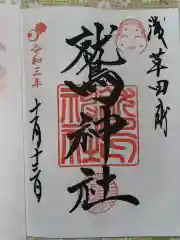 浅草田甫
鷲神社
令和三年
十一月十三日